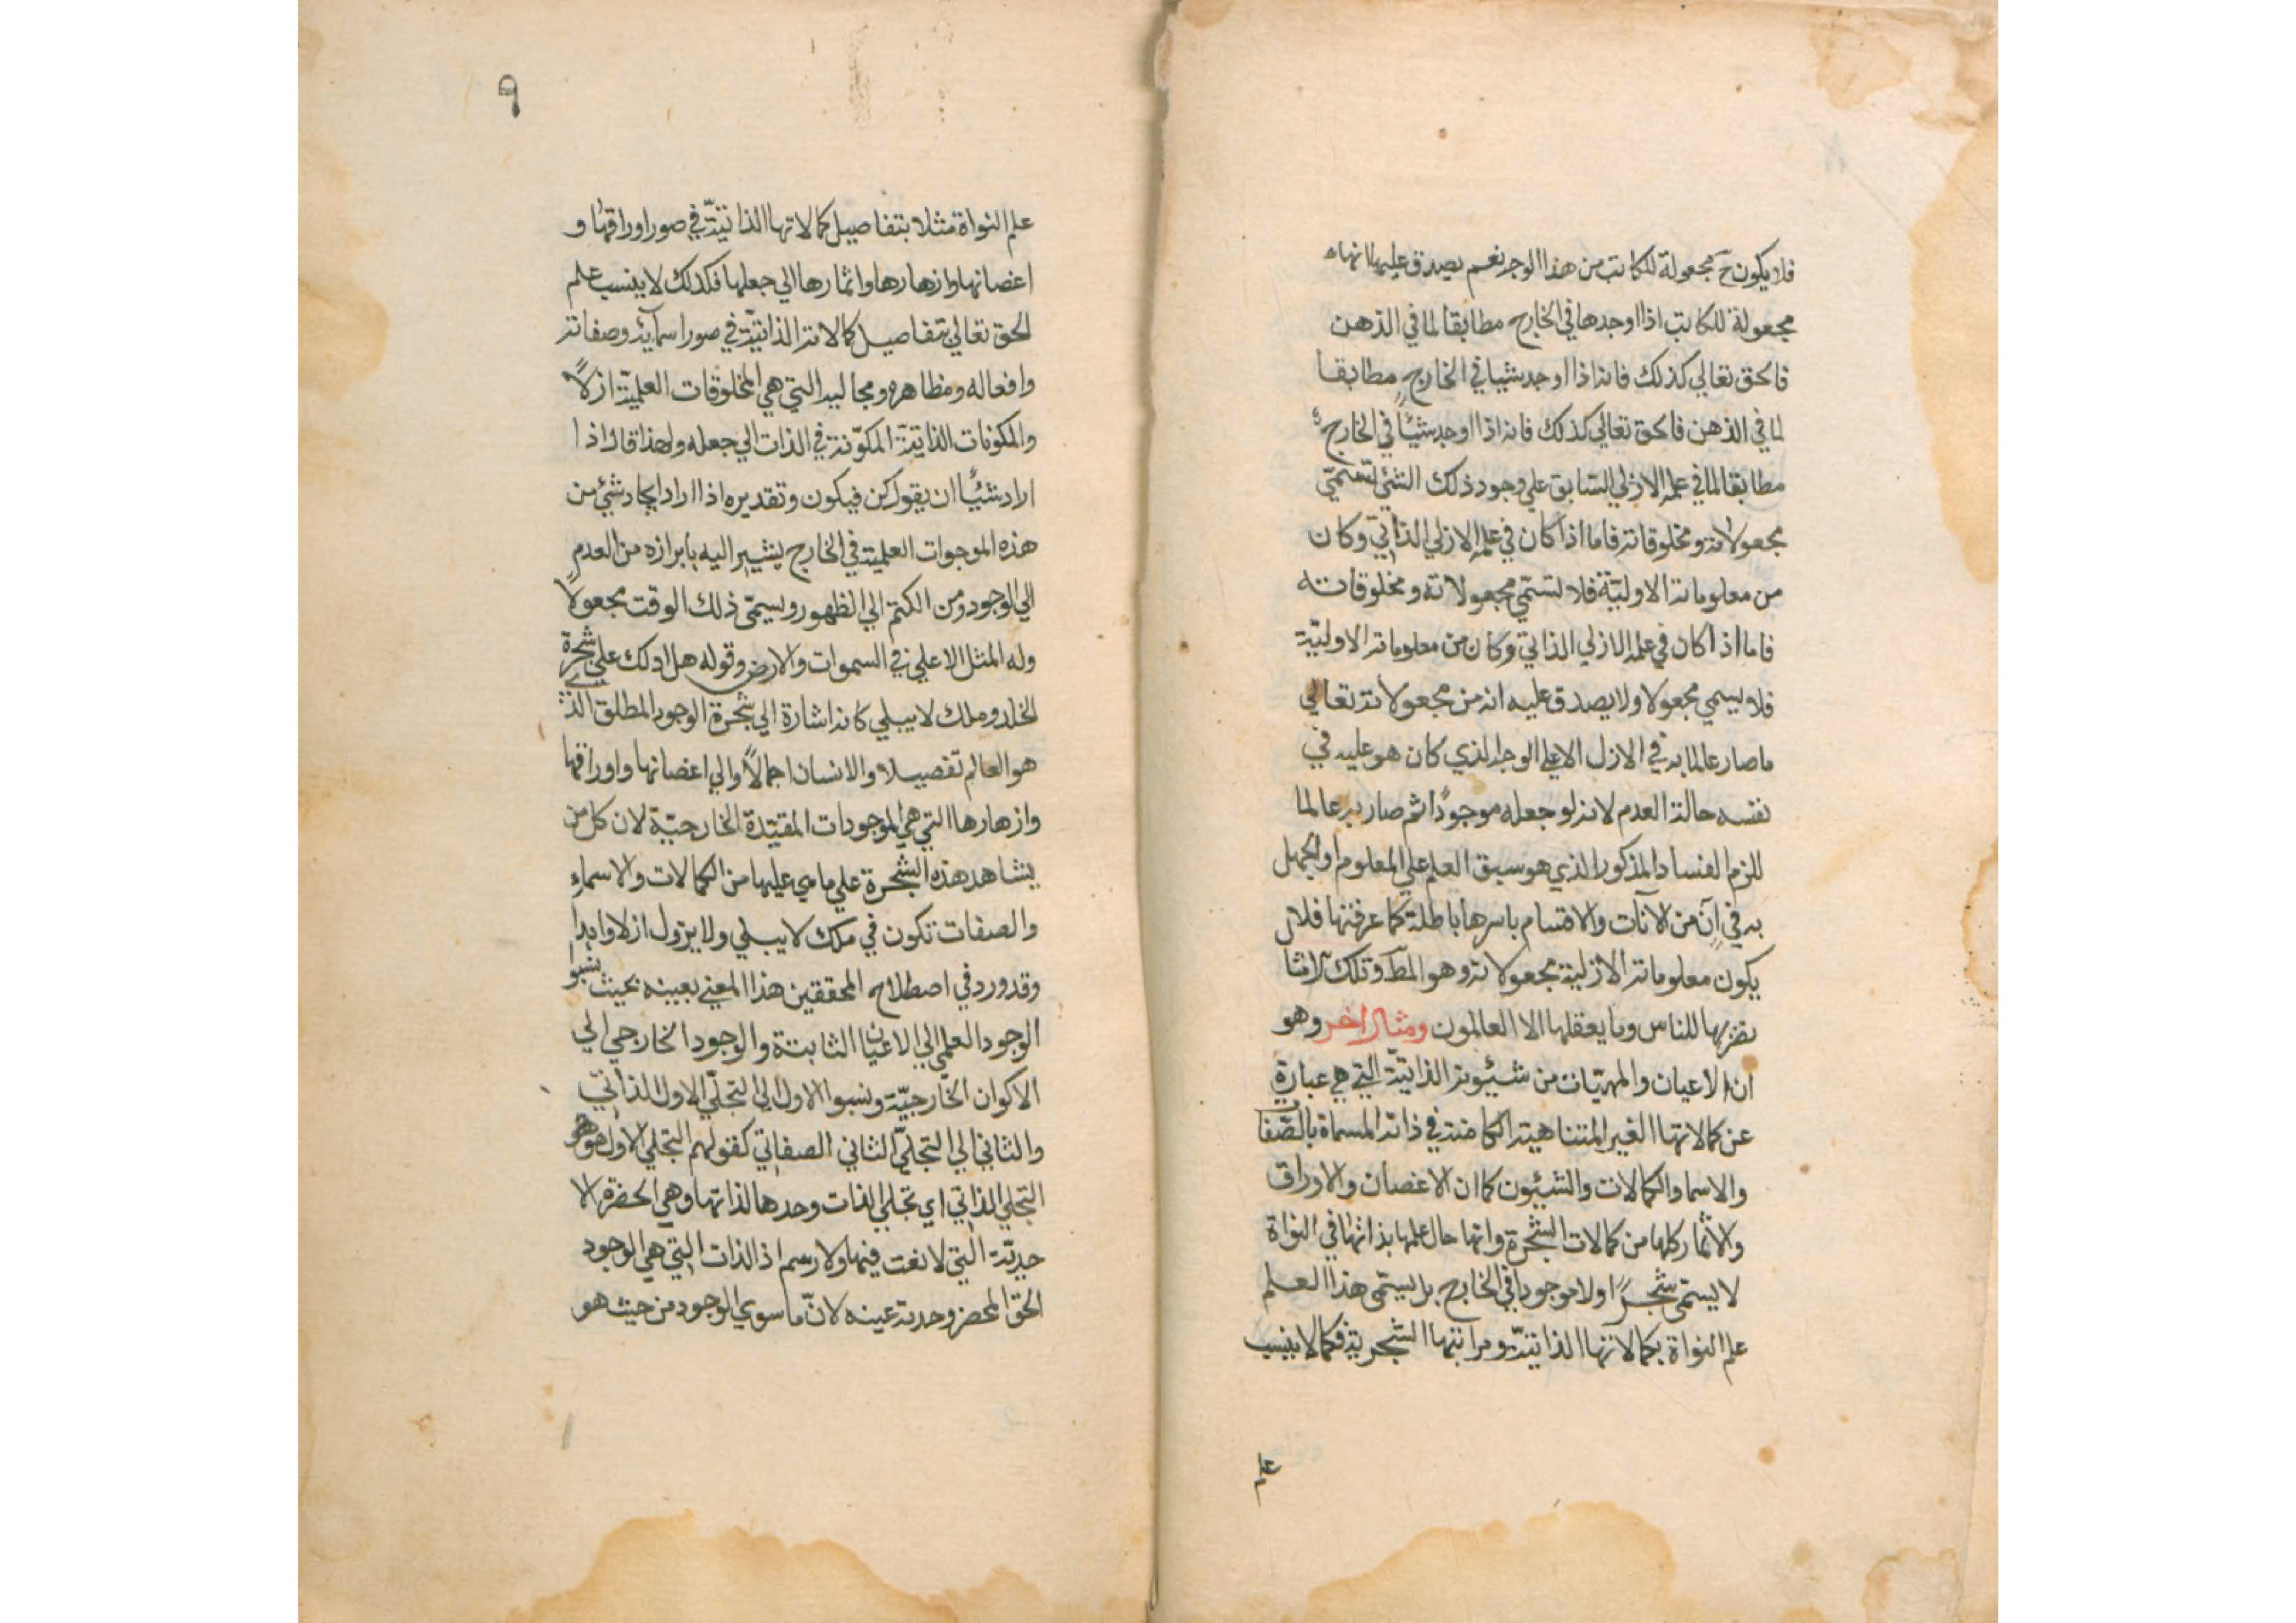 فلا يكون ح مجعولة للكاتب من هذا الوجه نعم يصدق عليها انها
مجعولة للكاتب اذا اوجدها في الخارج مطابقا لما في الذهن
فالحق تعالي كذلك فانه اذا اوجد شيئا في الخارج مطابقا
لما في الذهن فالحق تعالي كذلك فانه اذا اوجد شيئًا في الخارج
مطابقا لما في علمه الازلي السّابق علي وجود ذلك الشئ تسمّي
مجعولاته ومخلوقاته فاما اذا كان في علمه الازلي الذاتيّ وكان
من معلوماته الاوليّة فلا تسمّي مجعولاته ومخلوقاته
فاما اذا كان في علمه الازلي الذاتي وكان من معلوماته الاوليّة
فلا يسمي مجعولا ولا يصدق عليه انه من مجعولاته تعالي
ما صار عالما به في الازل الا علي الوجه الذي كان هو عليه في
نفسه حالة العدم لانه لو جعله موجودًا ثم صار به عالما
للزم الفساد المذكور الذي هو سبق العلم علي المعلوم او الجهل
به في آن من الآنات والاقسام باسرها باطلة كما عرفتها فلا
يكون معلوماته الازلية مجعولاته وهو المط وتلك الامثا
نضربها للناس وما يعقلها الا العالمون ومثال اخر وهو
ان الاعيان والمهيّات من شيئونه الذاتيّة التي هي عبارة
عن كمالاتها الغير المتناهية الكامنة في ذاته المسماة بالصّفا
والاسما والكمالات والشيئون كما ان الاغصان والاوراق
والاثمار كلها من كمالات الشّجرة وانها حال علمها بذاتها في النواة
لا يسمّى شجرًا ولا موجودا في الخارج بل يسمّى هذا العلم
علم النواة بكمالاتها الذاتيّة ومراتبها الشّجرية فكما لا ينسب
علم
٩
علم النواة مثلا بتفاصيل كمالاتها الذاتيّة في صور اوراقها و
اغصانها وازهارها واثمارها الي جعلها فكذلك لا ينسب علم
الحق تعالي بتفاصيل كمالاته الذاتيّة في صور اسمآئه وصفاته
وافعاله ومظاهره ومجاليه التي هي المخلوقات العلميّة ازلاً
والمكونات الذاتيّة المكوّنة في الذات الي جعله ولهذا قال اذا
اراد شيئًا ان يقول كن فيكون وتقديره اذا اراد ايجاد شئ من
هذه الموجوات العلمية في الخارج يشير اليه بابرازه من العدم
الي الوجود ومن الكتم الي الظهور ويسمّى ذلك الوقت مجعولاً
وله المثل الاعلي في السموات والارض وقوله هل ادلك علي شجرة
الخلد وملك لا يبلي كانه اشارة الي شجرة الوجود المطلق الذي
هو العالم تفصيلا والانسان اجمالاً والي اغصانها واوراقها
وازهارها التي هي الموجودات المقيّدة الخارجيّة لان كل من
يشاهد هذه الشّجرة علي ما هي عليها من الكمالات والاسماء
والصفات تكون في ملك لا يبلي ولا يزول ازلا وابدا
وقد ورد في اصطلاح المحققين هذا المعني بعينه بحيث نسبوا
الوجود العلمي الي الاعيان الثابتة والوجود الخارجي الي
الاكوان الخارجيّة ونسبوا الاول الي التجلّي الاول الذاتي
والثاني الي التجلّي الثاني الصفاتي كقولهم التجلي الاول هو
التجلي الذاتي اي تجلي الذات وحدها لذاتها وهي الحضرة الا
حديّة التي لا نعت فيها ولا رسم اذ الذات التي هي الوجود
الحق المحض وحدته عينه لانّ ما سوي الوجود من حيث هو